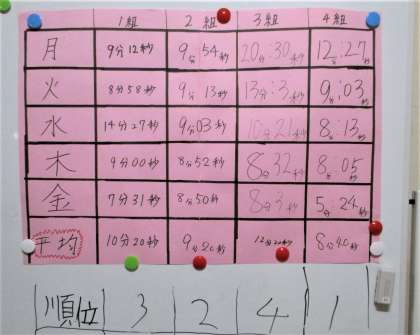 1組 2組 3組 4組
月 9分12秒 9分54秒 20分:30秒 12分:27秒
火 8分58秒 9分13秒 13分:3秒 9分:03秒
水 14分27秒 9分03秒 10分21秒 8分:13秒
木 9分00秒 8分52秒 8分32秒 8分:05秒
金 7分31秒 8分50秒 8分3秒 5分:24秒
平均 10分20秒 9分20秒 12分20秒 8分40秒
順位 3 2 4 1